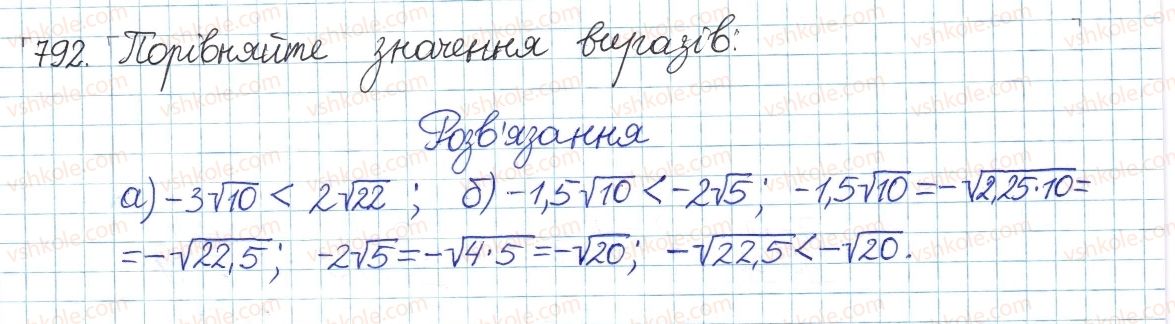 792. Порівняйте значення виразів:
Розв'язання
а) -3√10 < 2√22 ; б) -1,5√10 < -2√5; -1,5√10 = -√2,25·10 =
= -√22,5; -2√5 = -√4·5 = -√20; -√22,5 < -√20.